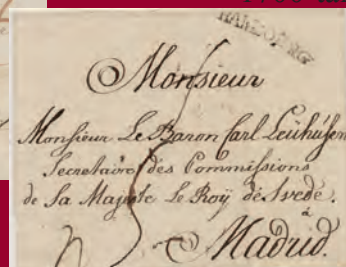 HAMBOURG
Monsieur
Monsieur Le Baron Carl Leuhúsen
Secretaire des Commissions
de Sa Majeste Le Roÿ de Svede.
à
Madrid.